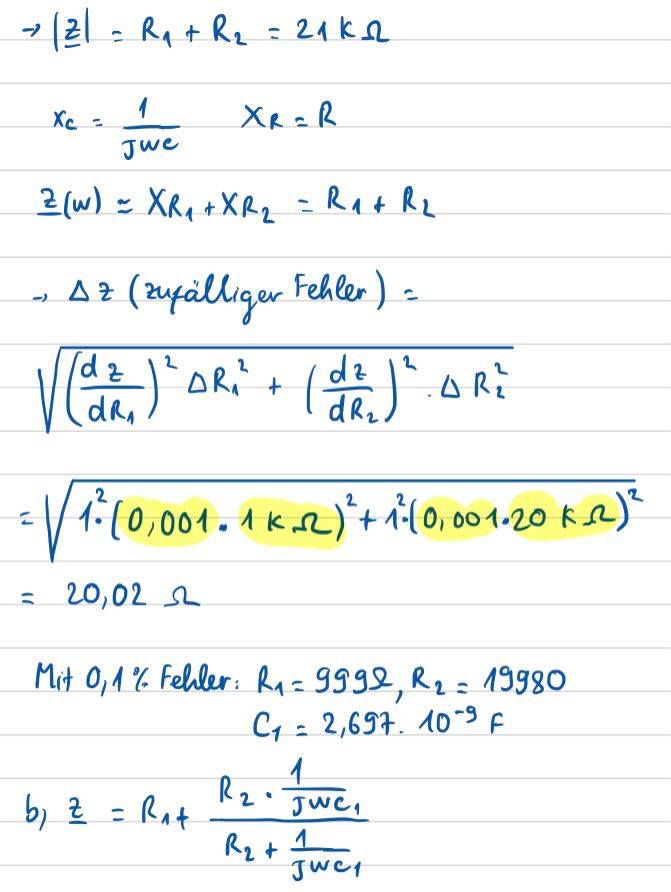 → |z| = R₁ + R₂ = 21 k Ω
Xc = 1/(Jwc) XR = R
z(w) ≃ XR₁ + XR₂ = R₁ + R₂
→ Δz (zufälliger Fehler) =
√((dz/dR₁)² ΔR₁² + (dz/dR₂)² · ΔR₂²)
= √(1²·(0,001 · 1 k Ω)² + 1²·(0,001·20 k Ω)²)
= 20,02 Ω
Mit 0,1% Fehler: R₁ = 999Ω, R₂ = 19980
C₁ = 2,697· 10⁻⁹ F
b) z = R₁ + (R₂ · 1/(Jwc₁))/(R₂ + 1/(Jwc₁))